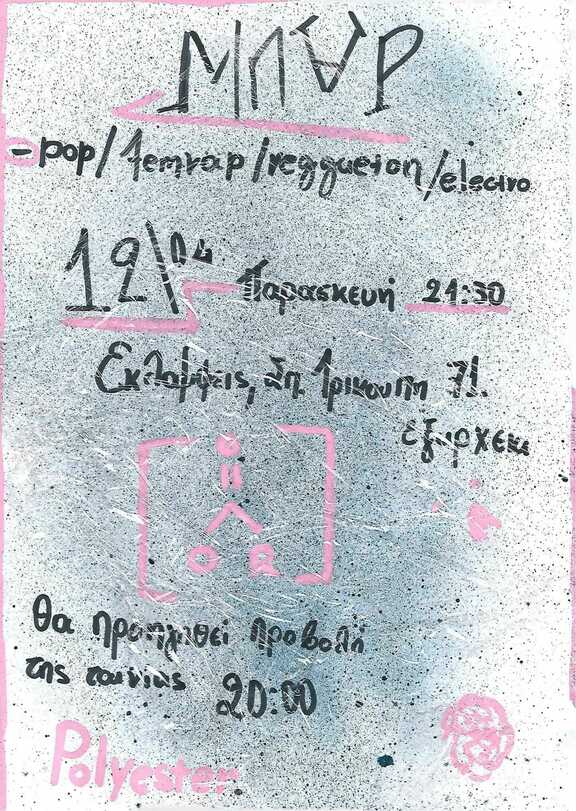 ΜΠΑΡ
-pop/femrap/reggaeton/electro
12/04 Παρασκευή 21:30
Εκλάμψεις, Σπ. Τρικούπη 71.
εξαρχεια
θα προηγηθεί προβολή
της ταινίας 20:00
Polyester